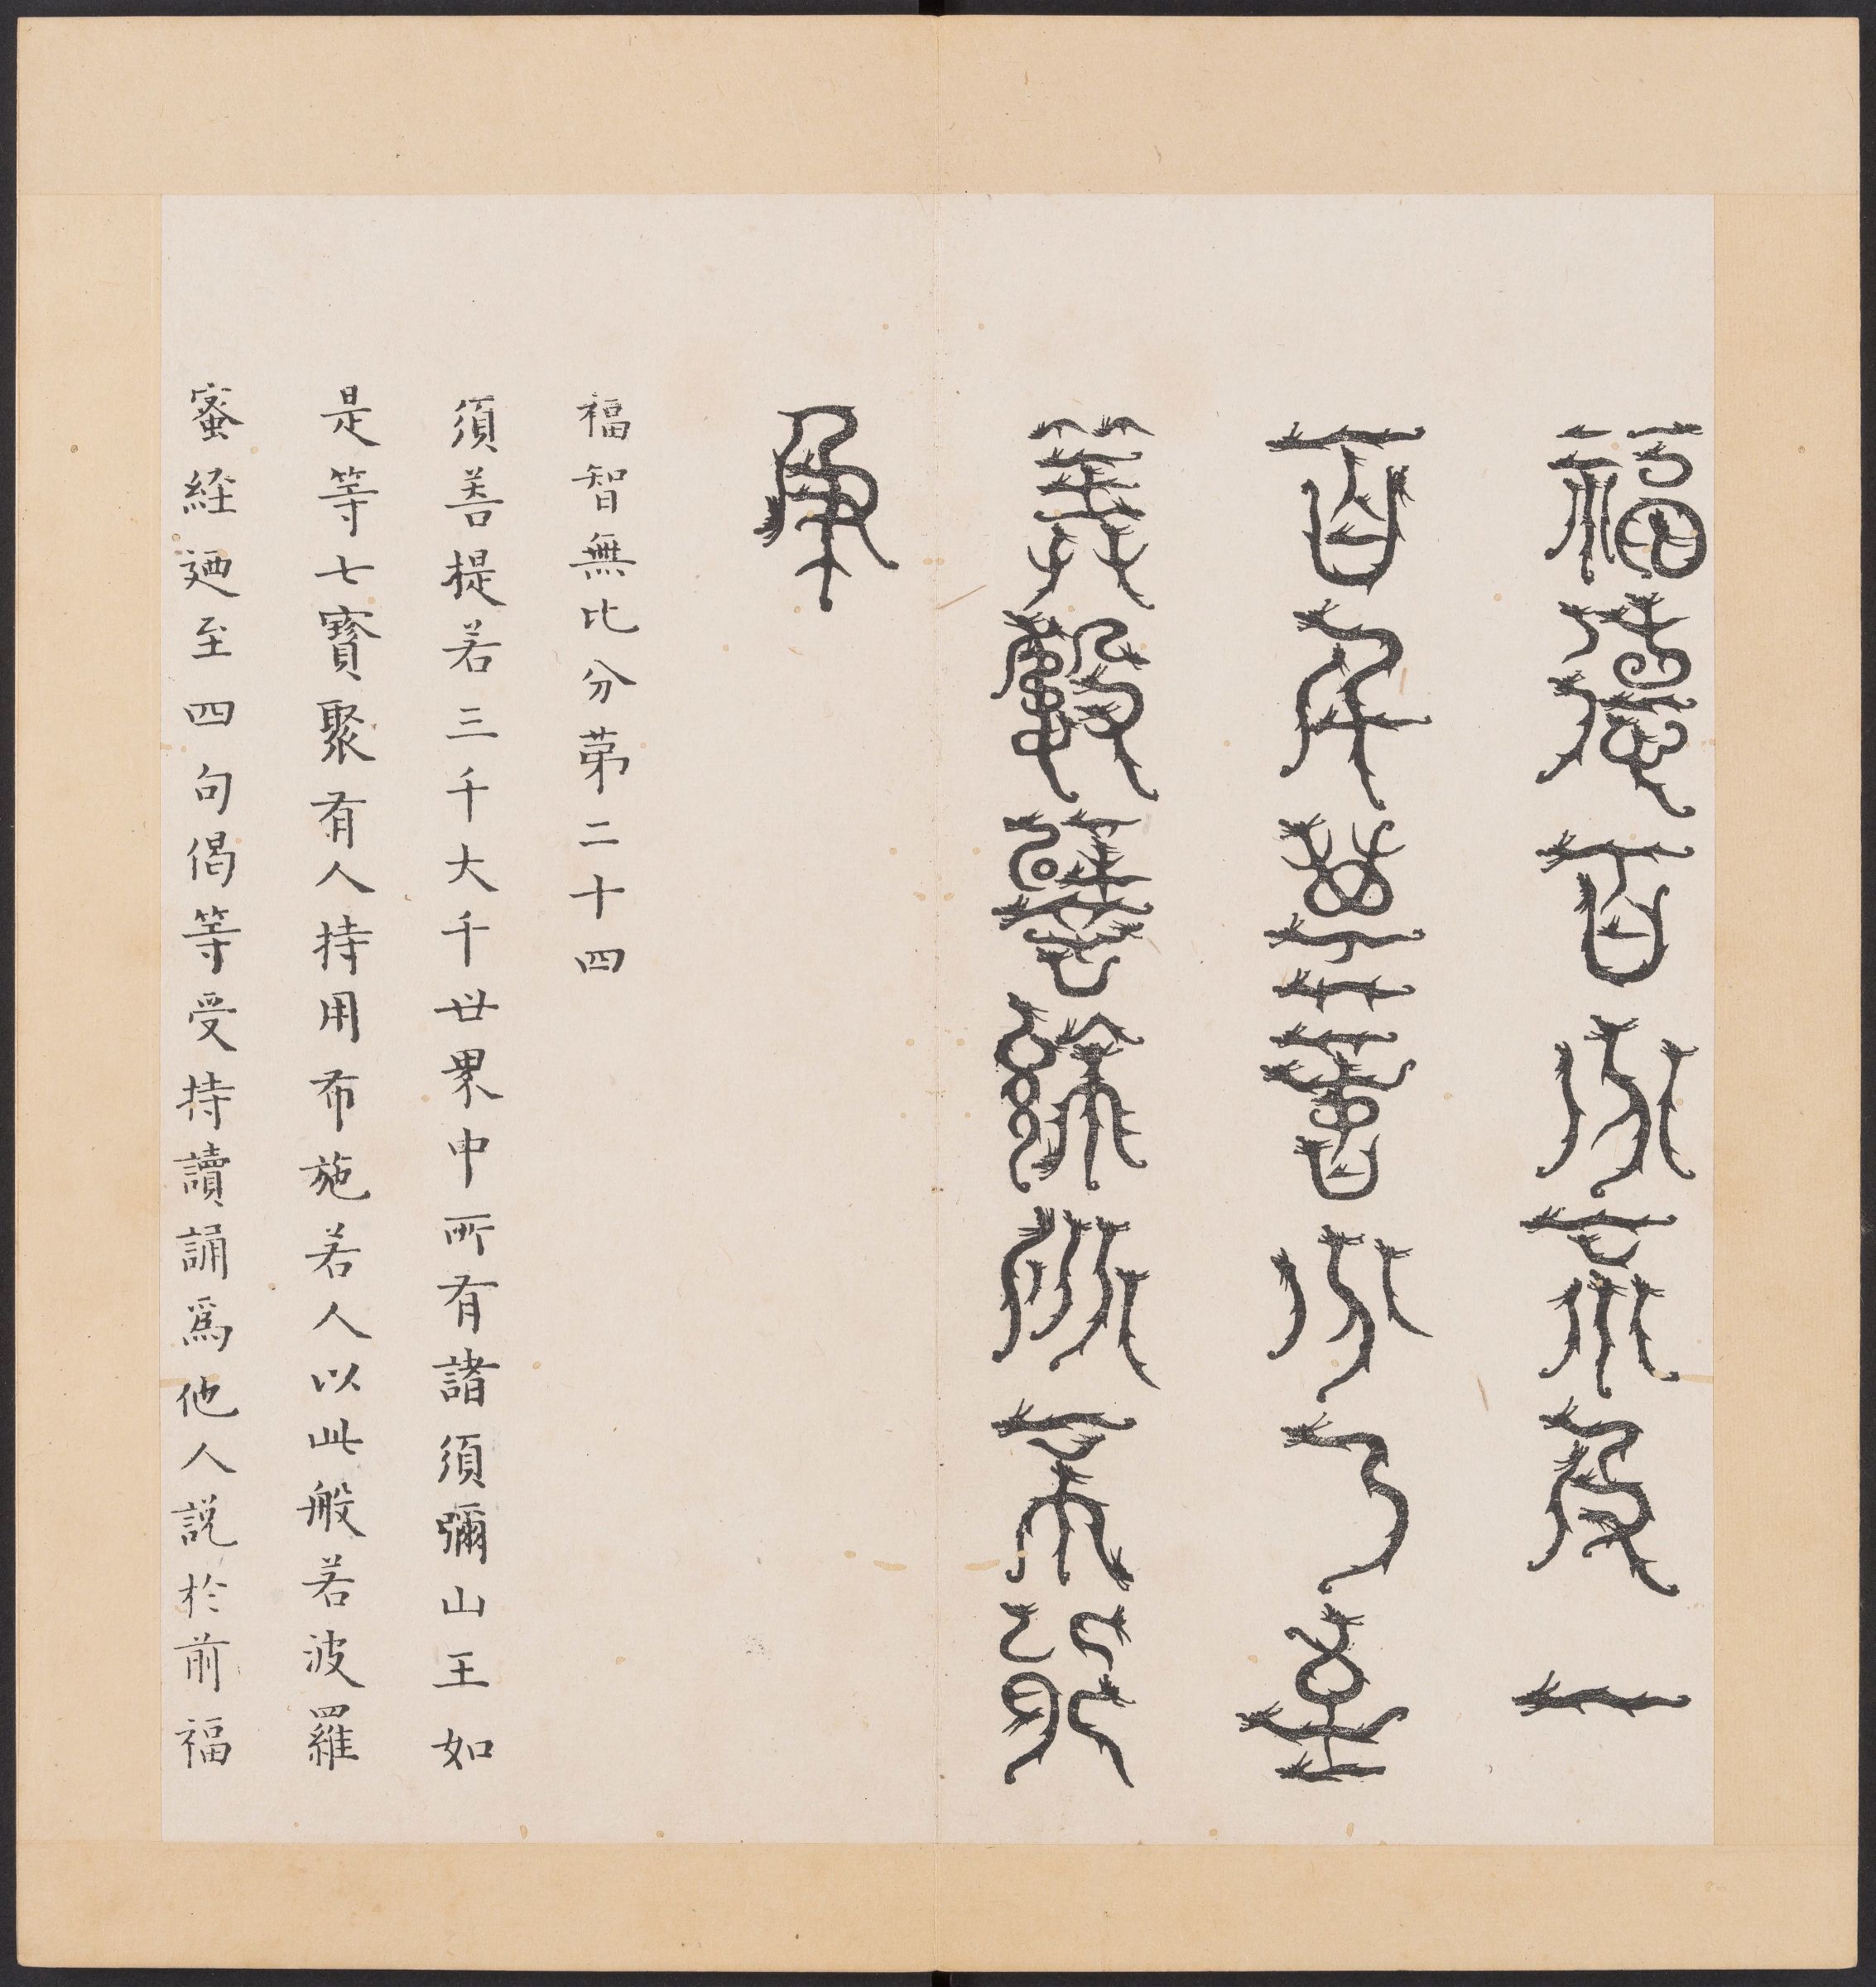 福德百分不及一
百千萬億分乃至
筭數譬喻所不能
及
福智無比分苐二十四
須菩提若三千大千世界中所有諸須彌山王如
是等七寶聚有人持用布施若人以此般若波羅
蜜経廼至四句偈等受持讀誦爲他人説於前福